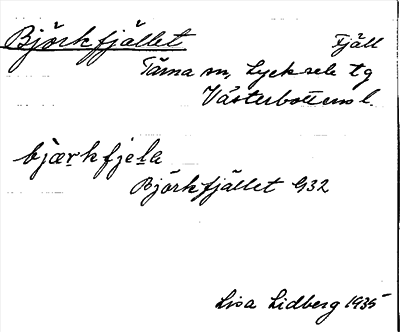 Björkfjället Fjäll
Tärna sn, Lycksele tg
Västerbottens l.
bjærkfjela
Björkfjället G32
Lisa Lidberg 1935